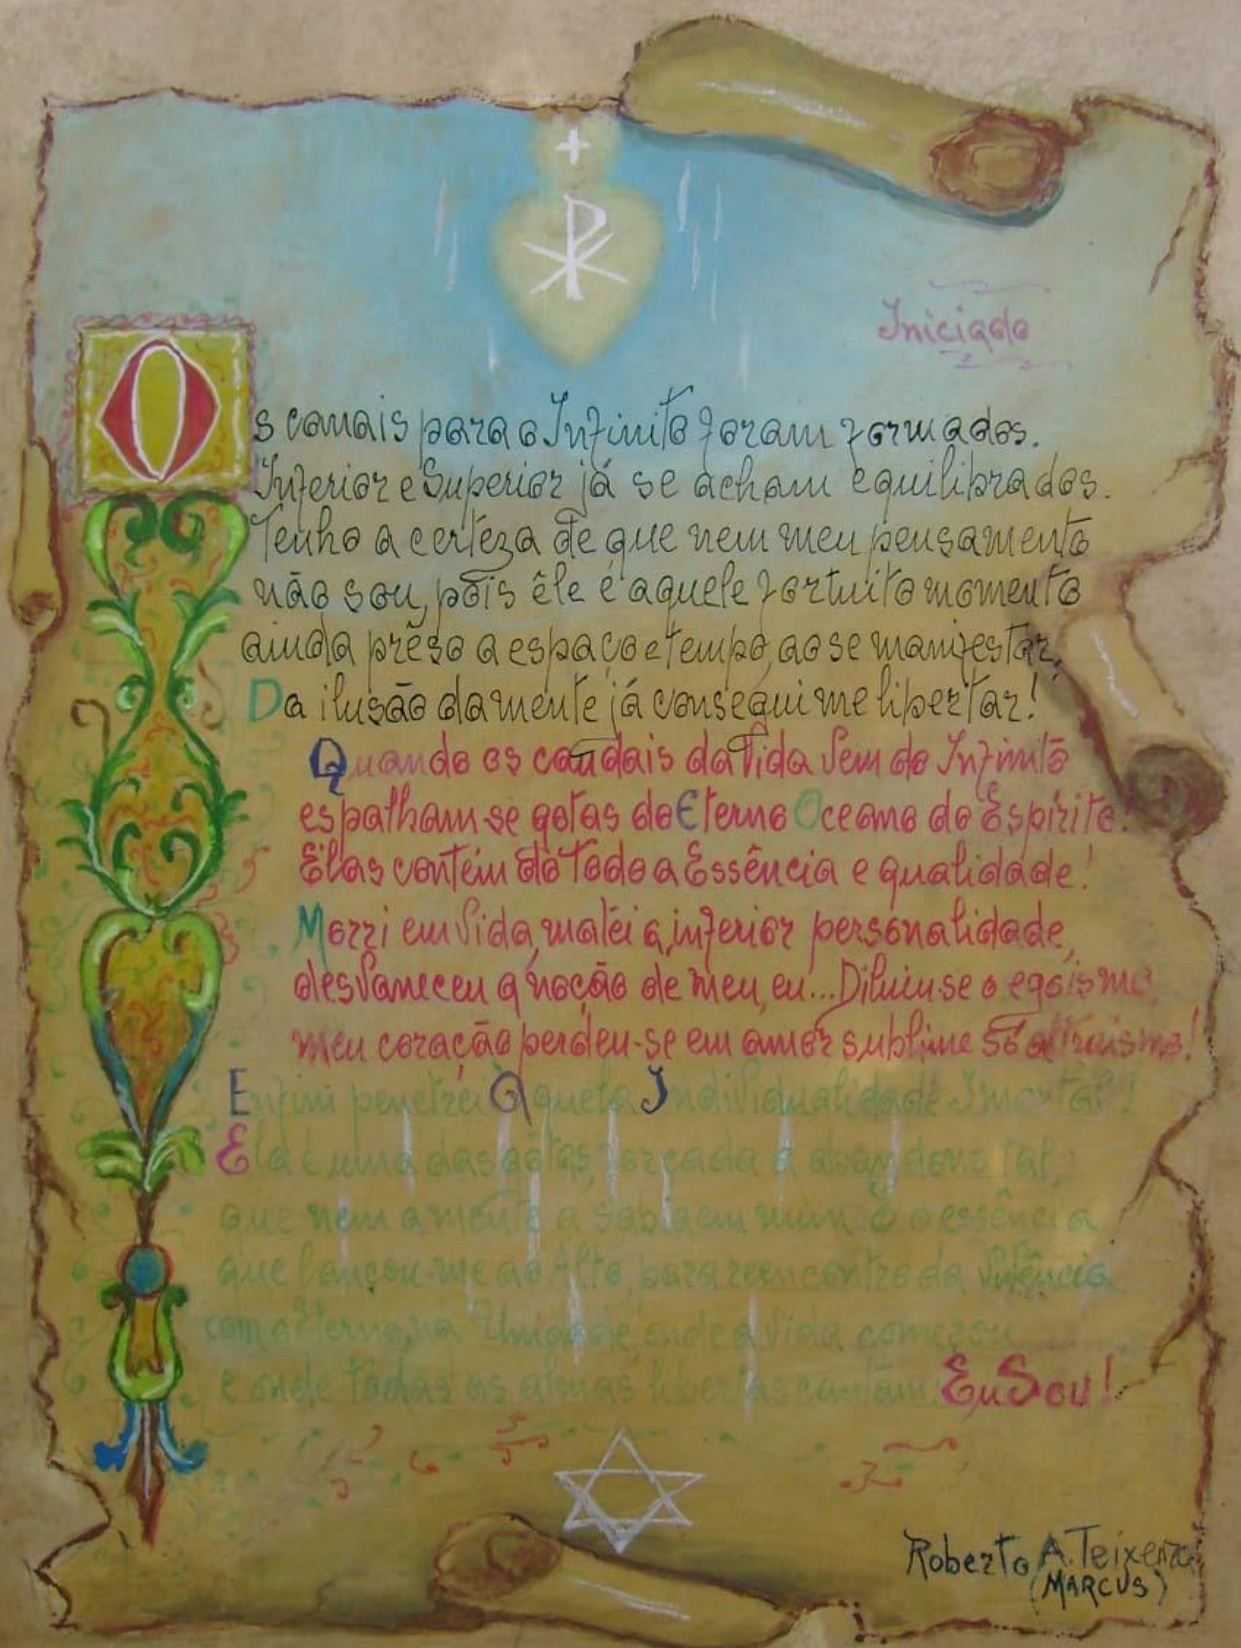 Iniciado
Os canais para o Infinito foram formados.
Inferior e Superior já se acham equilibrados.
Tenho a certeza de que nem meu pensamento
não sou, pois êle é aquele fortuito momento
ainda prêso a espaço e tempo, ao se manifestar.
Da ilusão da mente já consegui me libertar!
Quando os caudais da Vida Vem do Infinito
espalham-se gotas do Eterno Oceano do Espírito!
Elas contém do Todo a Essência e qualidade!
Morri em Vida, matei a inferior personalidade,
desVaneceu a noção de meu eu... Diluiu-se o egoismo
meu coração perdeu-se em amor sublime só altruismo!
Enfim penetrei Àquela Individualidade Imortal!
Ela é uma das gôtas, forçada a abandono tal,
que nem a mente a sabia em mim. É a essência
que lançou-me ao Alto, para reencontro da ViVência
com o Eterno, na Unidade, onde a Vida começou
e onde todas as almas libertas cantam: Eu Sou!
Roberto A. Teixeira
(MARCUS)